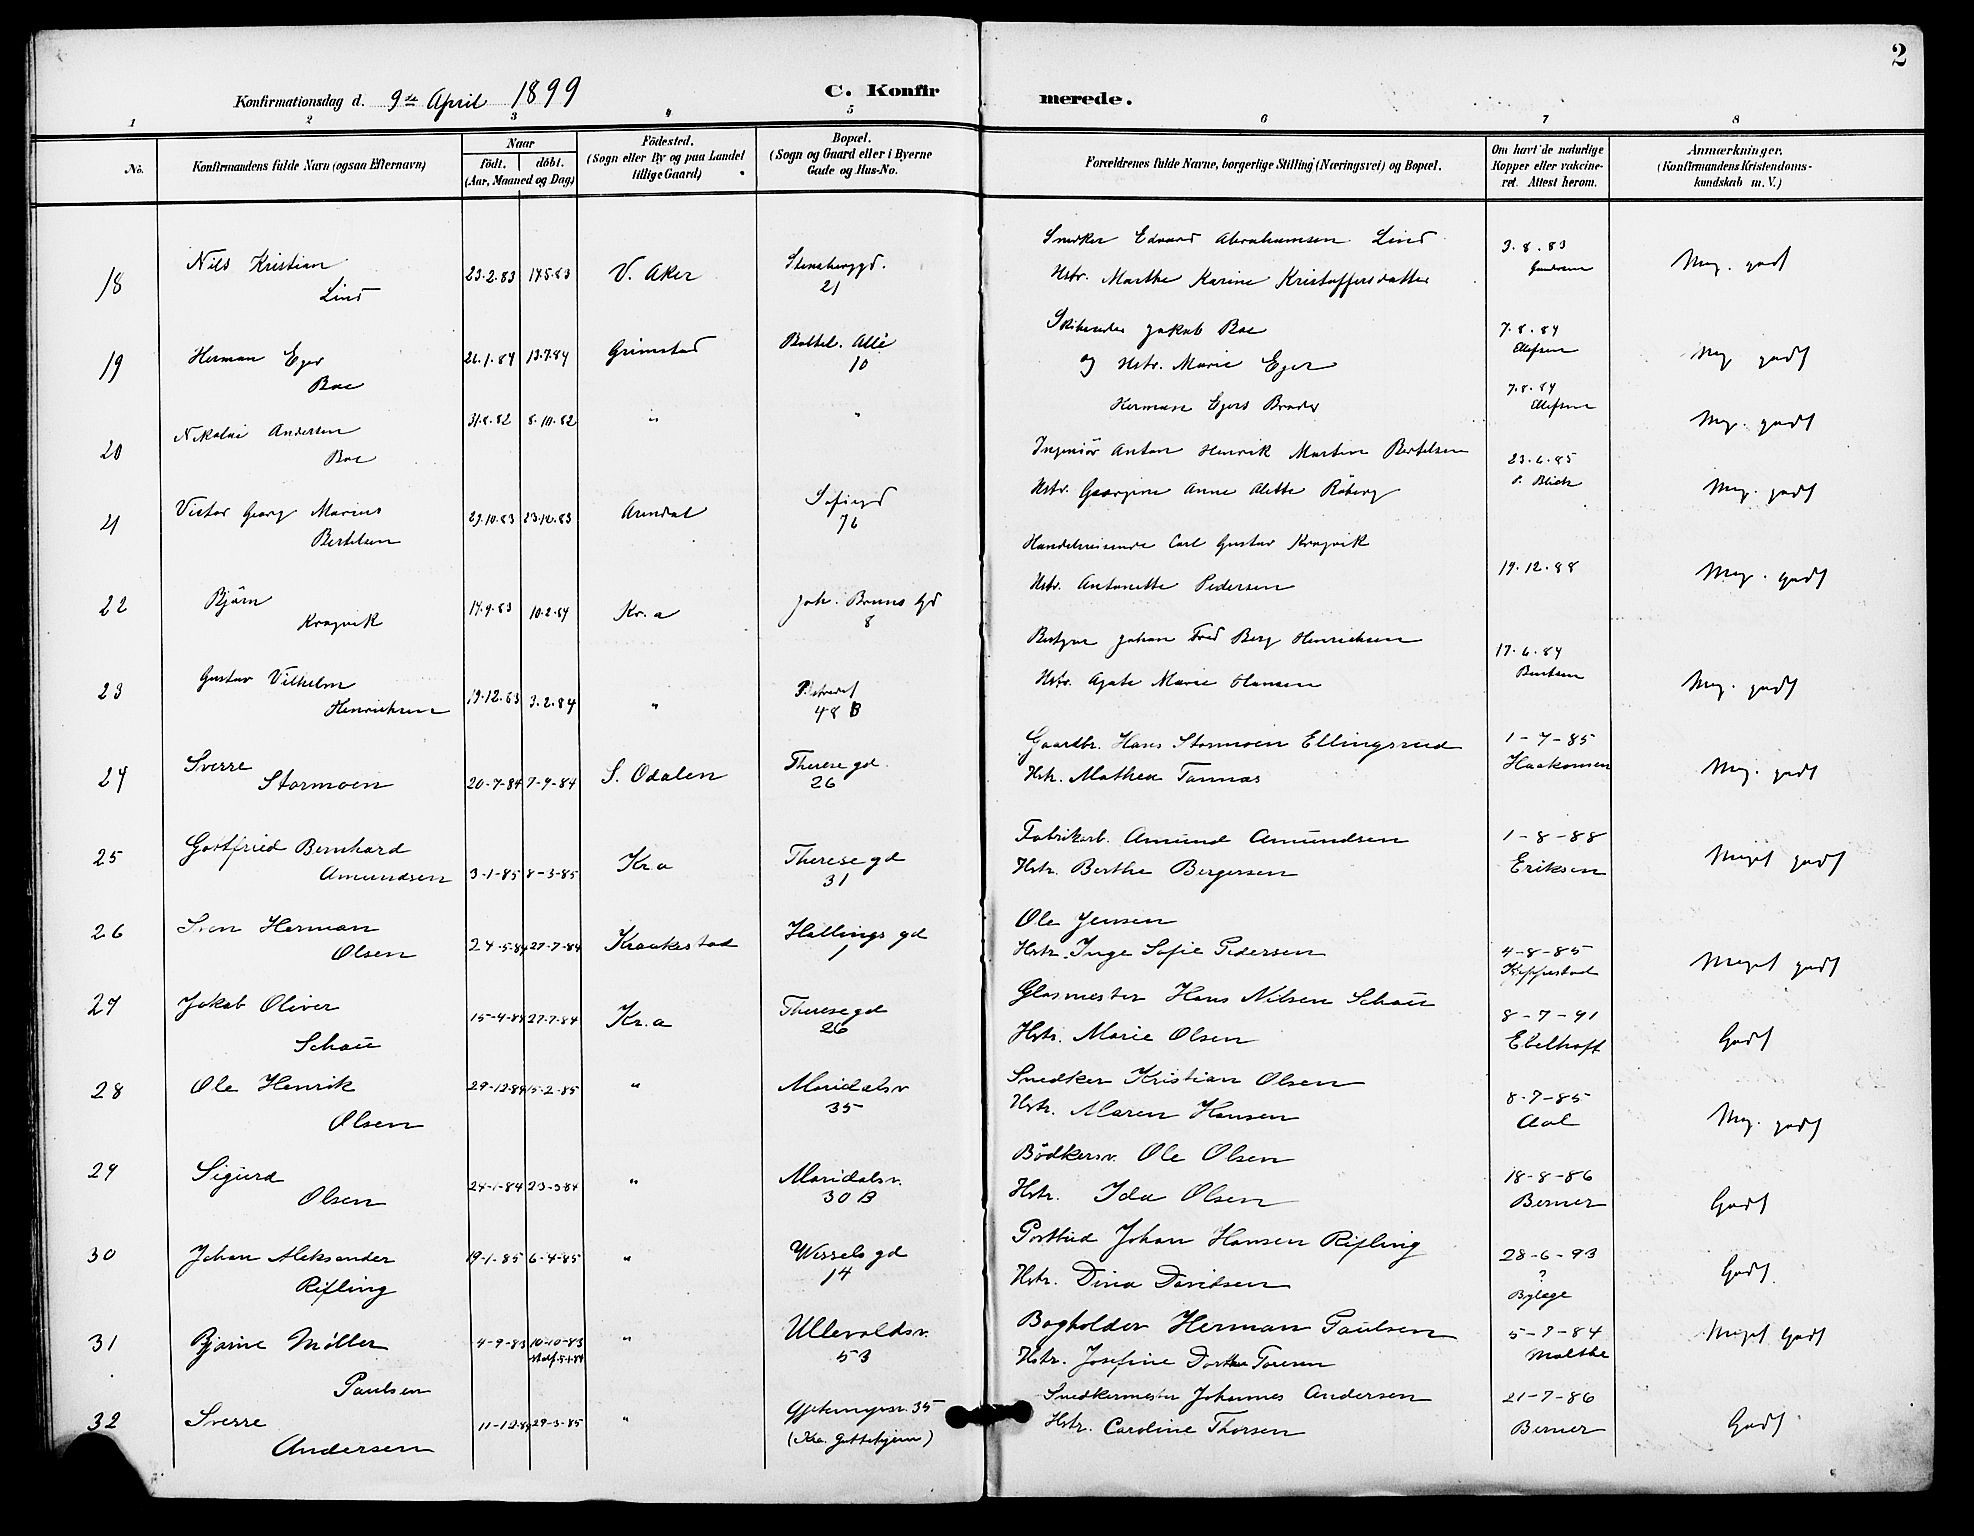 2
Konfirmationsdag d. 9de April 1899
C. Konfirmerede.
1 2 3 4 5 6 7 8
No.
Konfirmandens fulde Navn (ogsaa Efternavn)
Naar
födt. döbt.
(Aar, Maaned og Dag)
Födested.
(Sogn eller By og paa Landet
tillige Gaard)
Bopæl.
(Sogn og Gaard eller i Byerne
Gade og Hus-No.
Forældrenes fulde Navne, borgerlige Stilling (Næringsvei) og Bopæl.
Om havt de naturlige
Kopper eller vakcine-
ret. Attest herom.
Anmærkninger.
(Konfirmandens Kristendoms-
kundskab m. V.)
18 Nils Kristian 23.2.83 17.5.83 V. Aker Stensberggd. Snedker Edvard Abrahamsen Lind 3.8.83 Meg. godt
Lind 21 Hstr. Marthe Karine Kristoffersdatter
19 Herman Eger 26.1.84 13.7.84 Grimstad Boltel. Allé Skibsreder Jakob Boe 7.8.84 Meg godt
Boe 10 og Hstr. Marie Eger Ellefsen
20 Nikolai Andersen 31.8.82 8.10.82 " " Herman Egers Broder 7.8.84 Meg. godt
Boe Ellefsen
21 Victor Georg Marius 29.10.83 23.12.83 Arendal Sofiegd Ingeniör Anton Henrik Martin Bertelsen 23.6.85 Meg. godt
Bertelsen 76 Hstr. Georgine Anne Alette Röberg
22 Bjärn 17.9.83 10.2.84 Kr.a Joh. Bruns Gd Handelsreisende Carl Gustav Kragvik 19.12.88 Meg. godt
Kragvik 8 Hstr. Antonette Pedersen
23 Gustav Vilhelm 19.12.83 3.2.84 " Pilestrædet Bestyrer Johan Fred Berg Henrichsen 17.6.84 Meg. godt
Henrichsen 48 B Hstr. Agate Marie Hansen Bentsen
24 Sverre 20-7-84 7-9-84 S. Odalen Therese gd. Gaardbr. Hans Stormoen Ellingsrud 1-7-85 Meg. godt
Stormoen 26 Hstr. Mathea Tannæs Haakonsen
25 Gottfried Bernhard 3-1-85 8-3-85 Kr.a Therese gd Fabrikarb. Amund Amundsen 1-8-88 Meget godt
Amundsen 31 Hstr. Berthe Bergersen Eriksen
26 Sven Herman 24-5-84 27-7-84 Kraakestad Hallings gd Ole Jensen 4-8-85 Meget godt
Olsen 1 Hstr. Inge Sofie Pedersen
27 Jakob Oliver 15-4-84 27-7-84 Kr.a Therese gd Glasmester Hans Nilsen Schou 8-7-91 Godt
Schou 26 Hstr. Marie Olsen Ebeltoft
28 Ole Henrik 29-12-84 15-2-85 " Maridalsv. Snedker Kristian Olsen 8-7-85 Meg. godt
Olsen 35 Hstr. Maren Hansen Aal
29 Sigurd 24-1-84 23-3-84 " Maridalsv. Bödkersv. Ole Olsen 18-8-86 Godt
Olsen 30 B Hstr. Ida Olsen Berner
30 Johan Aleksander 19-1-85 6-4-85 " Wessels gd Postbud Johan Hansen Rifling 28-6-93 Godt
Rifling 14 Hstr. Dina Davidsen ?
31 Bjarne Möller 4-9-83 10-10-83 " Ullevoldsv. Bogholder Herman Paulsen 5-9-84 Meget Godt
Paulsen 53 Hstr. Josefine Dorthea Malthe
32 Sverre 11-12-84 29-3-85 " Gjetemyrsv. 35 Snedkermester Johannes Andersen 21-7-86 Godt
Andersen (Kra. Guttehjem) Hstr. Caroline Thorsen Berner